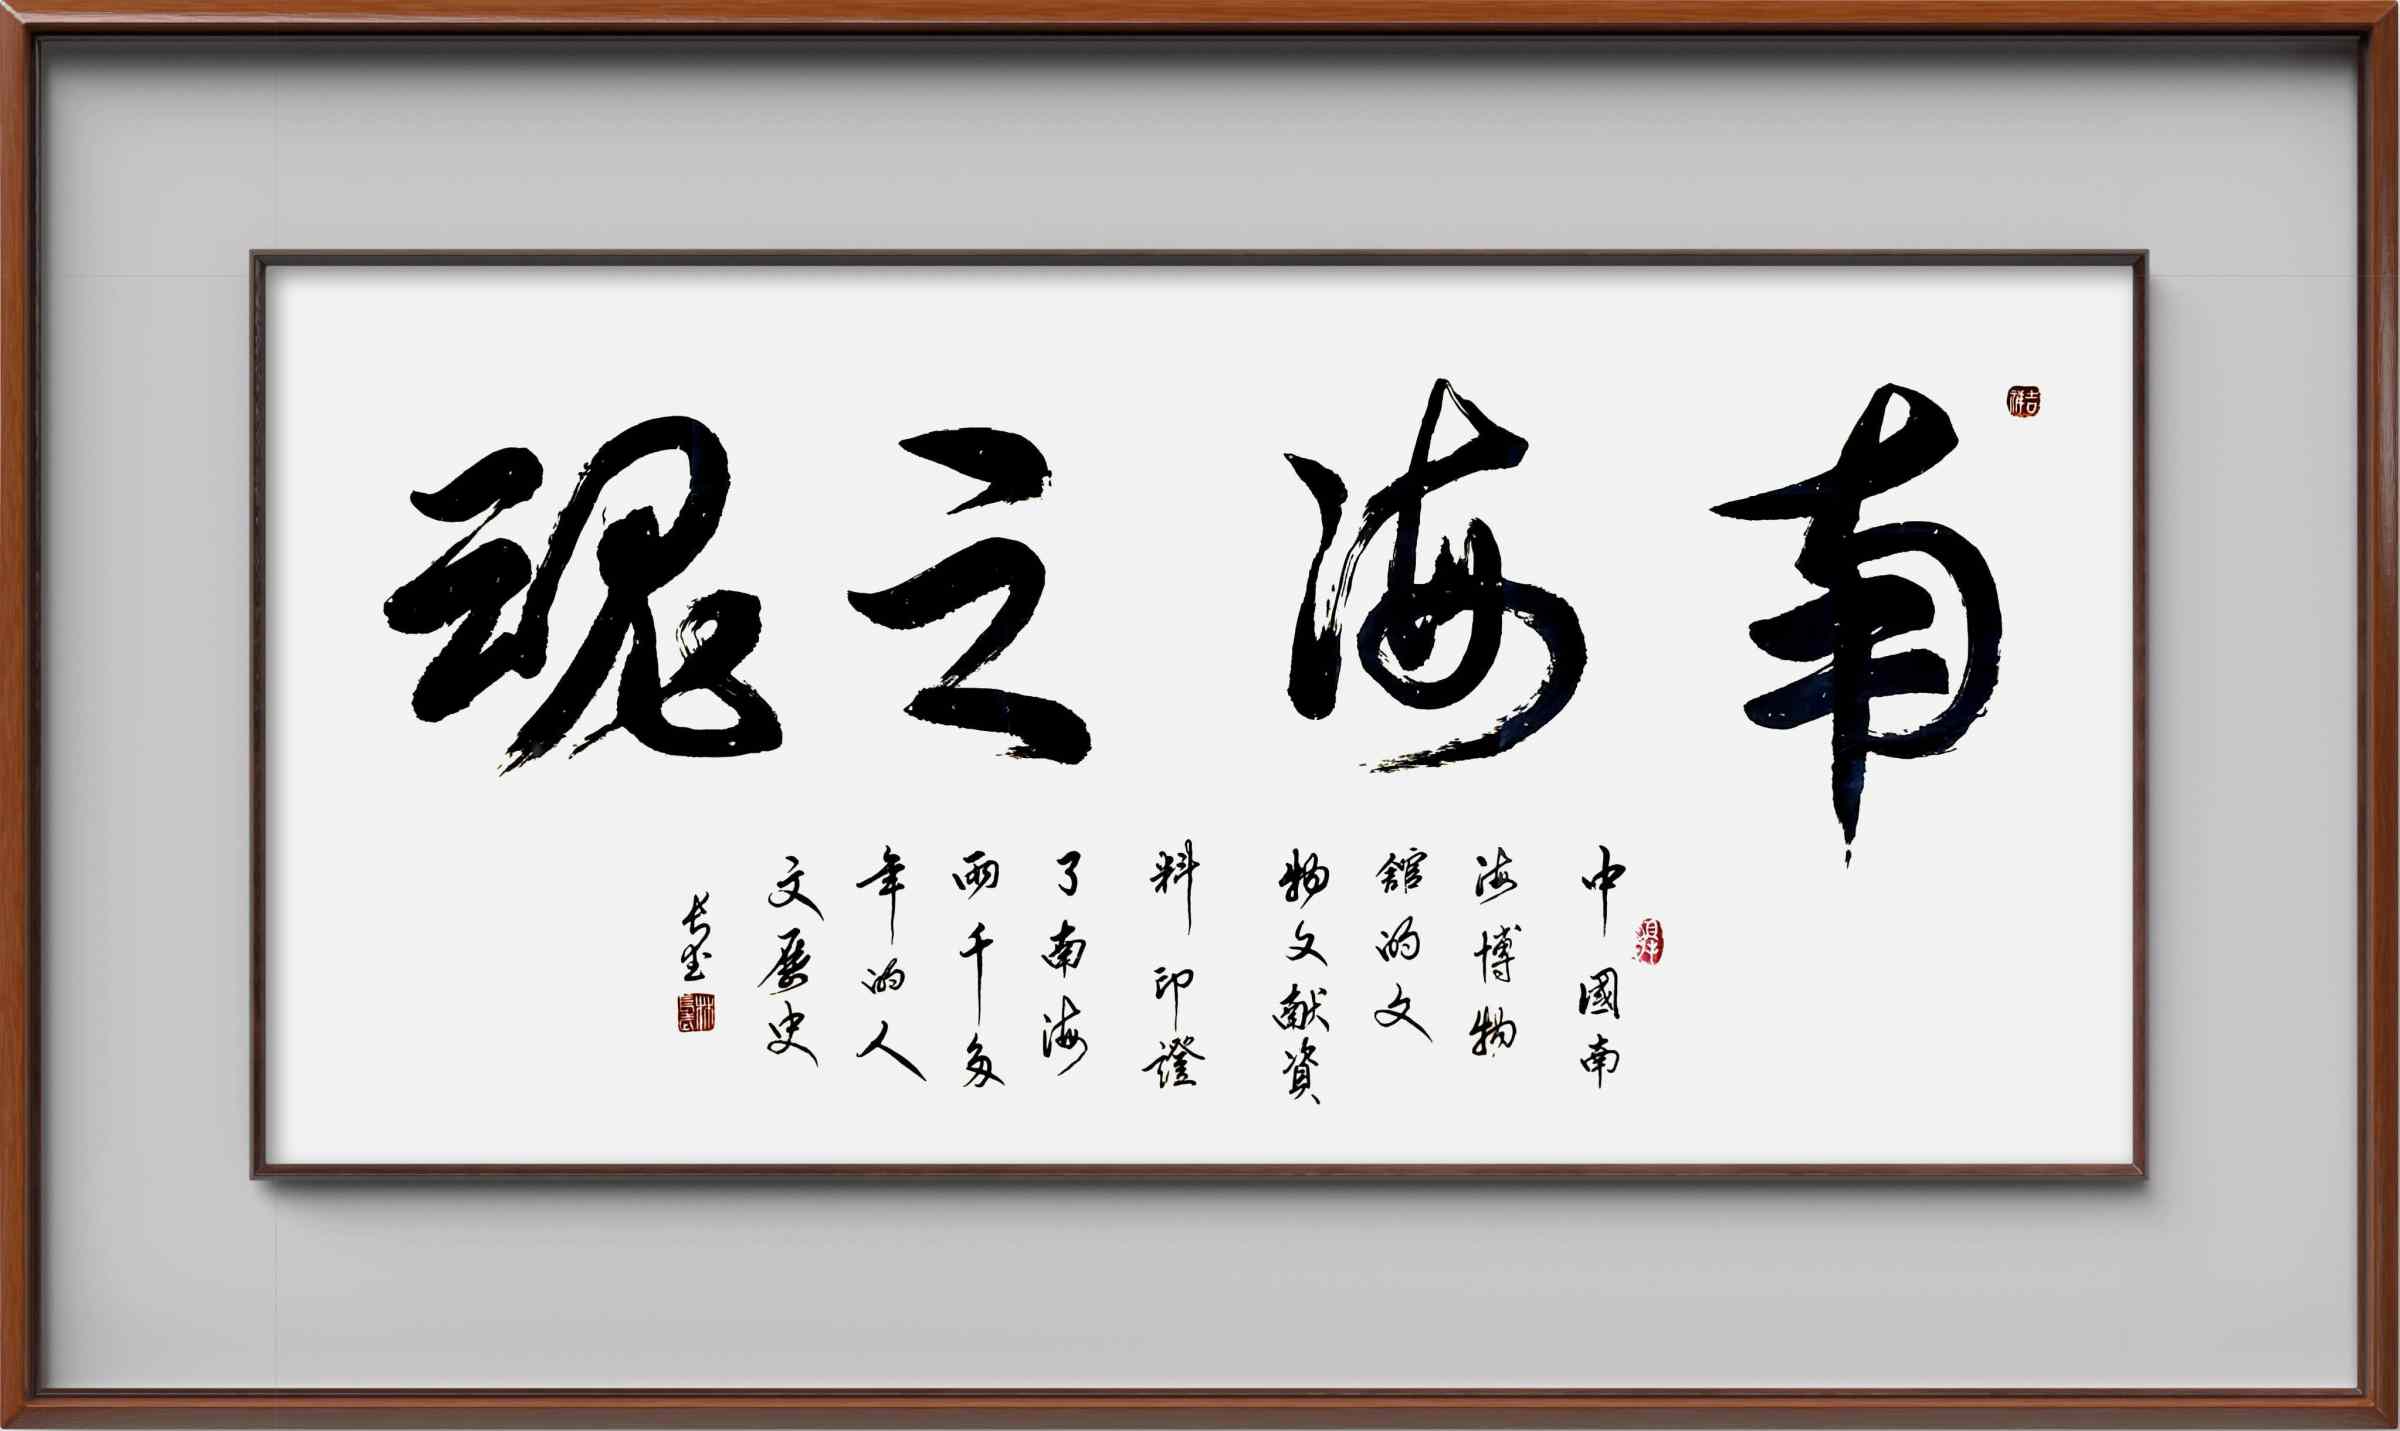 南海之魂
中國南
海博物
館的文
物文献資
料印證
了南海
兩千多
年的人
文歷史
吉祥